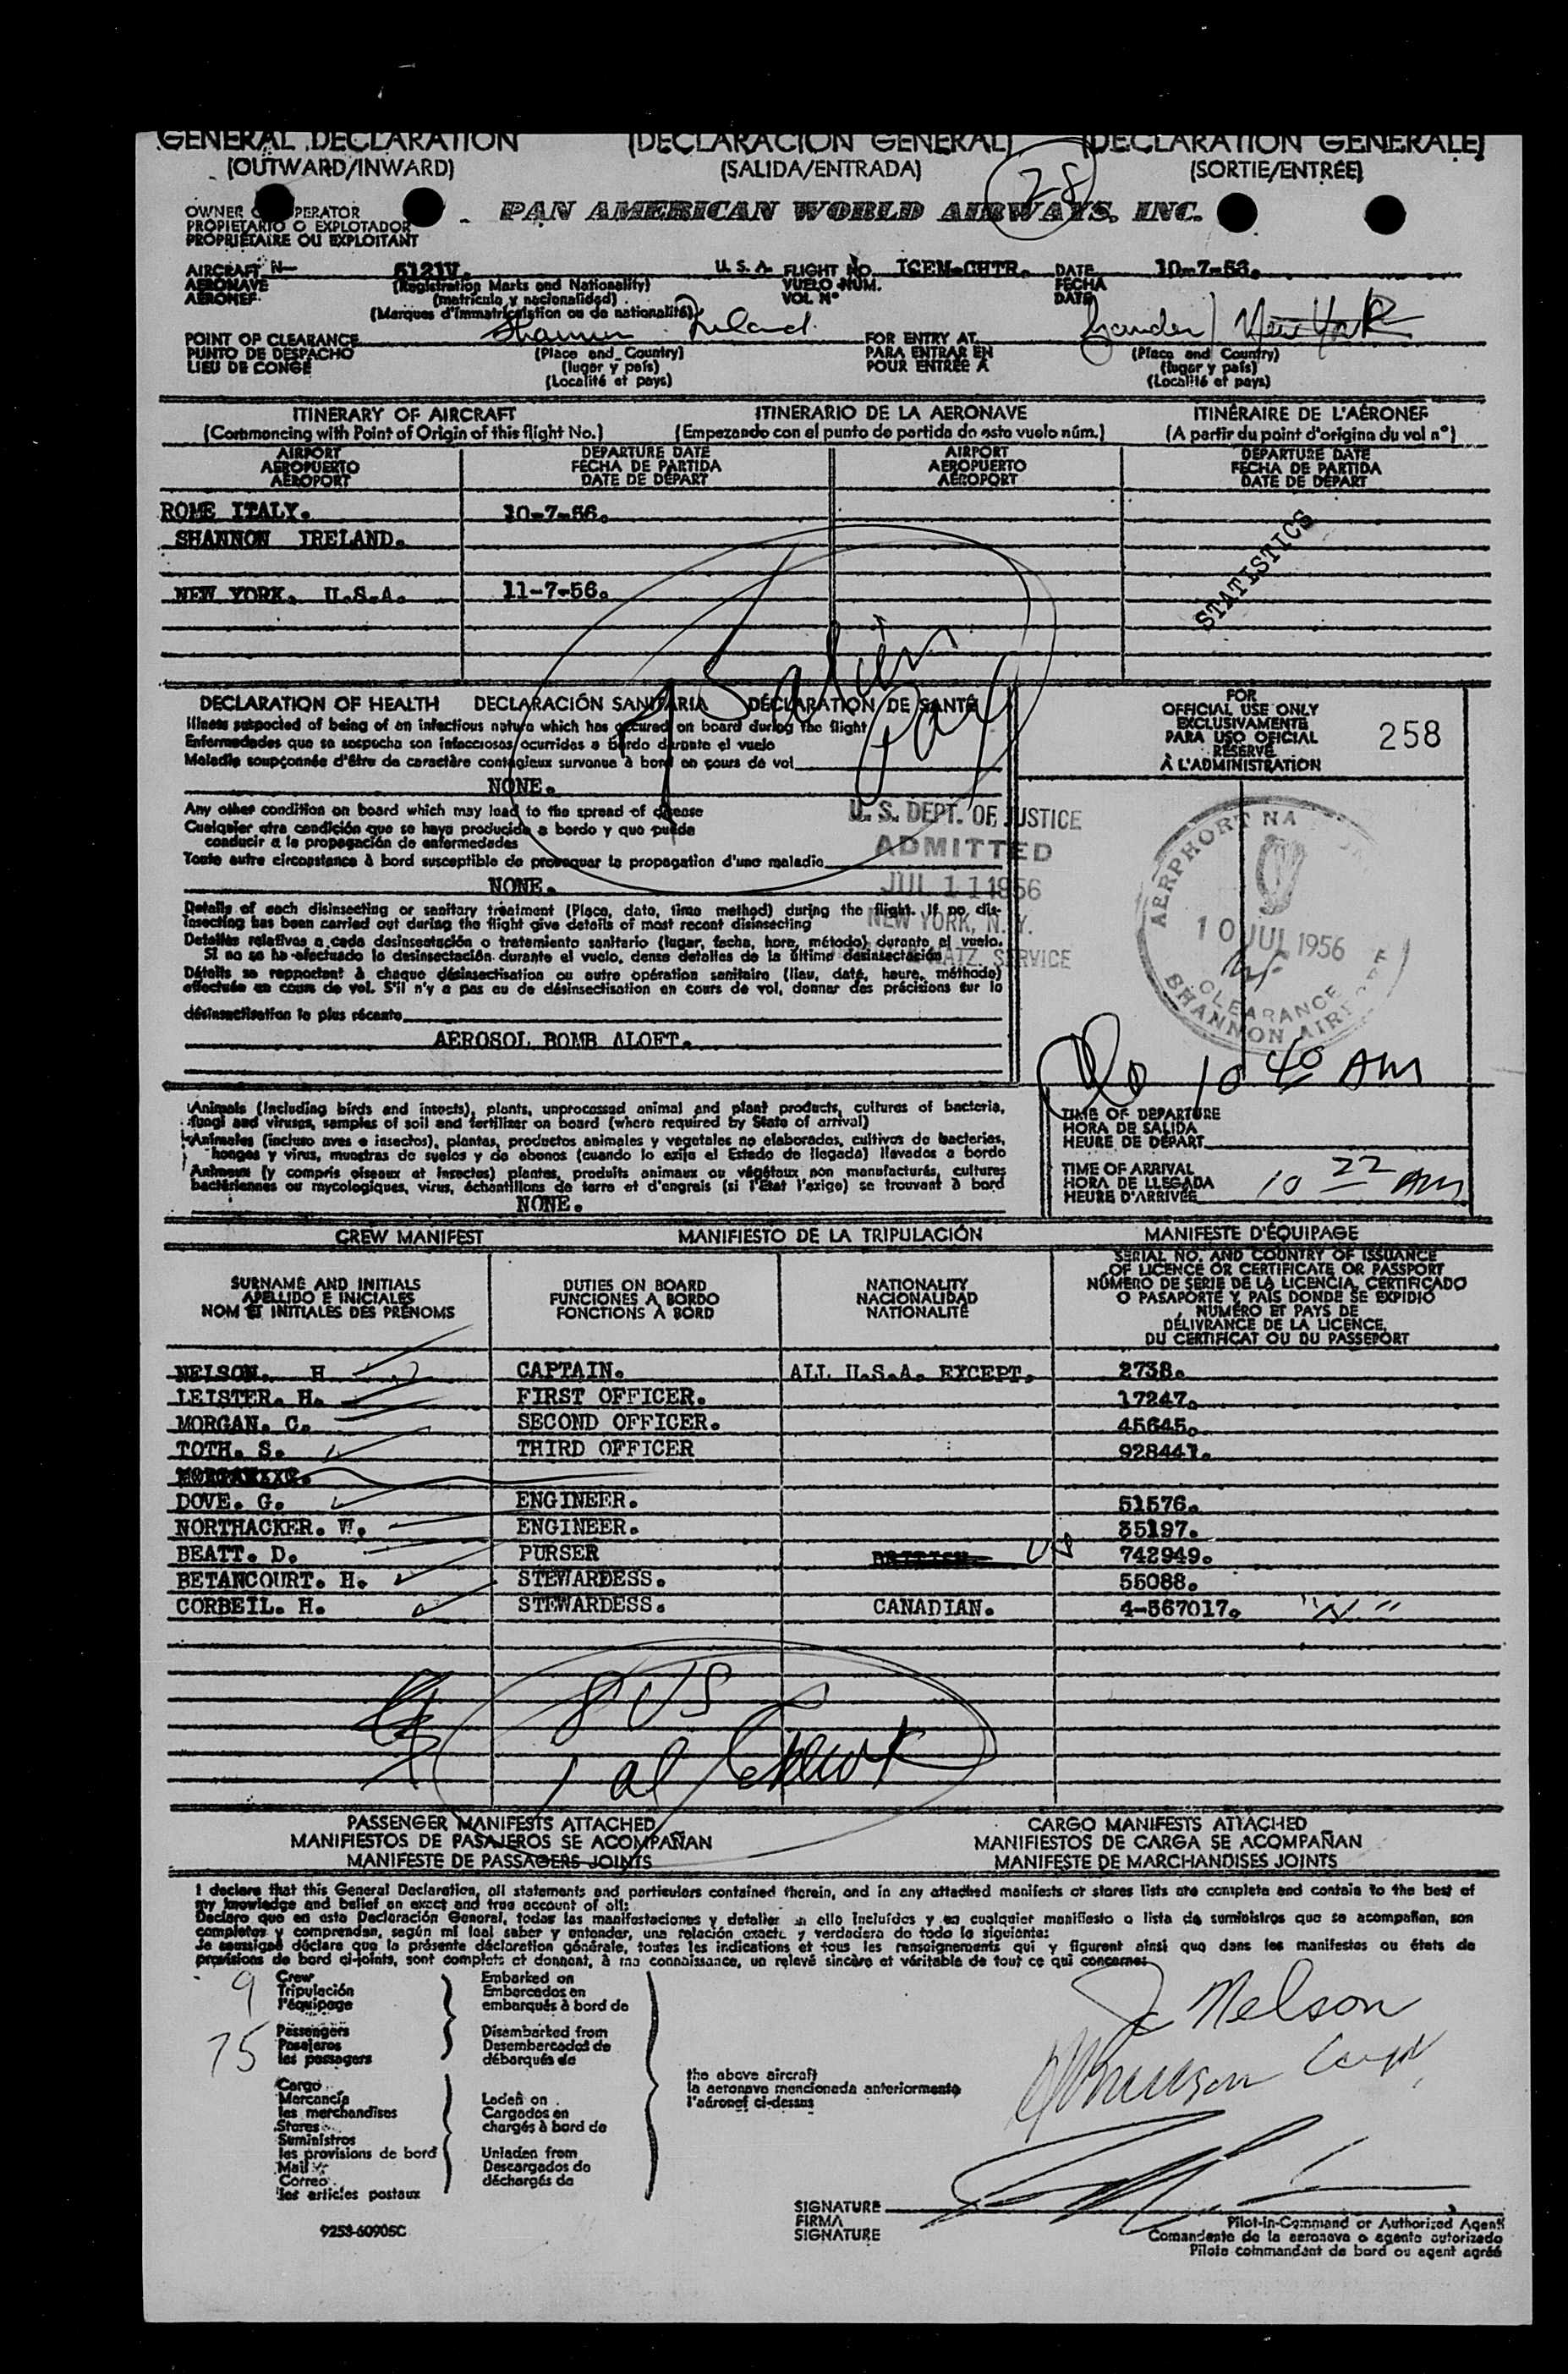 GENERAL DECLARATION (DECLARACIÓN GENERAL) (DÉCLARATION GÉNÉRALE)
(OUTWARD/INWARD) (SALIDA/ENTRADA) (SORTIE/ENTRÉE)
28
OWNER PERATOR
PROPIETARIO O EXPLOTADOR
PROPRIÉTAIRE OU EXPLOITANT
PAN AMERICAN WORLD AIRWAYS, INC.
AIRCRAFT N- 5121V. U.S.A. FLIGHT NO. ICEM-CHTR. DATE 10-7-56.
AERONAVE (Registration Marks and Nationality) VUELO NÚM. FECHA
AÉRONEF (matrícula y nacionalidad) VOL Nº DATE
(Marques d'immatriculation ou de nationalité)
POINT OF CLEARANCE Shannon Ireland. FOR ENTRY AT Gander / New York
PUNTO DE DESPACHO (Place and Country) PARA ENTRAR EN (Place and Country)
LIEU DE CONGÉ (lugar y país) POUR ENTRÉE À (lugar y país)
(Localité et pays) (Localité et pays)
ITINERARY OF AIRCRAFT ITINERARIO DE LA AERONAVE ITINÉRAIRE DE L'AÉRONEF
(Commencing with Point of Origin of this flight No.) (Empezando con el punto de partida de este vuelo núm.) (A partir du point d'origine du vol nº)
AIRPORT DEPARTURE DATE AIRPORT DEPARTURE DATE
AEROPUERTO FECHA DE PARTIDA AEROPUERTO FECHA DE PARTIDA
AÉROPORT DATE DE DÉPART AÉROPORT DATE DE DÉPART
ROME ITALY. 10-7-56.
SHANNON IRELAND.
STATISTICS
NEW YORK. U.S.A. 11-7-56.
DECLARATION OF HEALTH DECLARACIÓN SANITARIA DÉCLARATION DE SANTÉ
Illness suspected of being of an infectious nature which has occured on board during the flight
Enfermedades que se sospecha son infecciosas ocurridas a bordo durante el vuelo
Maladie soupçonnée d'être de caractère contagieux survenue à bord en cours de vol
NONE.
FOR
OFFICIAL USE ONLY
EXCLUSIVAMENTE
PARA USO OFICIAL
RÉSERVÉ
À L'ADMINISTRATION
258
Any other condition on board which may lead to the spread of disease
Cualquier otra condición que se haya producido a bordo y que pueda
conducir a la propagación de enfermedades
Toute autre circonstance à bord susceptible de provoquer la propagation d'une maladie
NONE.
U. S. DEPT. OF JUSTICE
ADMITTED
JUL 11 1956
NEW YORK, N.Y.
NATZ. SERVICE
AERPHORT NA
10 JUL 1956
CLEARANCE
SHANNON AIRPORT
Details of each disinsecting or sanitary treatment (Place, date, time method) during the flight. If no dis-
insecting has been carried out during the flight give details of most recent disinsecting
Detalles relativos a cada desinsectación o tratamiento sanitario (lugar, fecha, hora, método) durante el vuelo.
Si no se ha efectuado la desinsectación durante el vuelo, dense detalles de la última desinsectación
Détails se rapportant à chaque désinsectisation ou autre opération sanitaire (lieu, date, heure, méthode)
effectuée en cours de vol. S'il n'y a pas eu de désinsectisation en cours de vol, donner des précisions sur la
désinsectisation la plus récente
AEROSOL BOMB ALOFT.
10 40 AM
Animals (Including birds and insects), plants, unprocessed animal and plant products, cultures of bacteria,
fungi and viruses, samples of soil and fertilizer on board (where required by State of arrival)
Animales (incluso aves e insectos), plantas, productos animales y vegetales no elaborados, cultivos de bacterias,
hongos y virus, muestras de suelos y de abonos (cuando lo exija el Estado de llegada) llevados a bordo
Animaux (y compris oiseaux et insectes) plantes, produits animaux ou végétaux non manufacturés, cultures
bactériennes ou mycologiques, virus, échantillons de terre et d'engrais (si l'État l'exige) se trouvant à bord
NONE.
TIME OF DEPARTURE
HORA DE SALIDA
HEURE DE DÉPART
TIME OF ARRIVAL
HORA DE LLEGADA
HEURE D'ARRIVÉE 10 22 AM
CREW MANIFEST MANIFIESTO DE LA TRIPULACIÓN MANIFESTE D'ÉQUIPAGE
SURNAME AND INITIALS
APELLIDO E INICIALES
NOM ET INITIALES DES PRÉNOMS
DUTIES ON BOARD
FUNCIONES A BORDO
FONCTIONS À BORD
NATIONALITY
NACIONALIDAD
NATIONALITÉ
SERIAL NO. AND COUNTRY OF ISSUANCE
OF LICENCE OR CERTIFICATE OR PASSPORT
NÚMERO DE SERIE DE LA LICENCIA, CERTIFICADO
O PASAPORTE Y PAÍS DONDE SE EXPIDIÓ
NUMÉRO ET PAYS DE
DÉLIVRANCE DE LA LICENCE,
DU CERTIFICAT OU DU PASSEPORT
NELSON. H CAPTAIN. ALL U.S.A. EXCEPT. 2738.
LEISTER. H. FIRST OFFICER. 17247.
MORGAN. C. SECOND OFFICER. 45645.
TOTH. S. THIRD OFFICER 928441.
DOVE. G. ENGINEER. 51576.
NORTHACKER. W. ENGINEER. 35197.
BEATT. D. PURSER BRITISH US 742949.
BETANCOURT. H. STEWARDESS. 55088.
CORBEIL. H. STEWARDESS. CANADIAN. 4-567017. "N"
8 US
1 al
PASSENGER MANIFESTS ATTACHED CARGO MANIFESTS ATTACHED
MANIFIESTOS DE PASAJEROS SE ACOMPAÑAN MANIFIESTOS DE CARGA SE ACOMPAÑAN
MANIFESTE DE PASSAGERS JOINTS MANIFESTE DE MARCHANDISES JOINTS
I declare that this General Declaration, all statements and particulars contained therein, and in any attached manifests or stores lists are complete and contain to the best of
my knowledge and belief an exact and true account of all:
Declaro que en esta Declaración General, todas las manifestaciones y detalles en ello incluídos y en cualquier manifiesto o lista de suministros que se acompañan, son
completos y comprenden, según mi leal saber y entender, una relación exacta y verdadera de todo lo siguiente:
Je soussigné déclare que la présente déclaration générale, toutes les indications et tous les renseignements qui y figurent ainsi que dans les manifestes ou états de
provisions de bord ci-joints, sont complets et donnent, à ma connaissance, un relevé sincère et véritable de tout ce qui concerne:
9 Crew
Tripulación
l'équipage
Embarked on
Embarcados en
embarqués à bord de
75 Passengers
Pasajeros
les passagers
Disembarked from
Desembarcados de
débarqués de
Cargo
Mercancía
les marchandises
Stores
Suministros
les provisions de bord
Mail
Correo
les articles postaux
Laden on
Cargados en
chargés à bord de
Unladen from
Descargados de
déchargés de
the above aircraft
la aeronave mencionada anteriormente
l'aéronef ci-dessus
Nelson
SIGNATURE
FIRMA
SIGNATURE
Pilot-in-Command or Authorized Agent
Comandante de la aeronave o agente autorizado
Pilote commandant de bord ou agent agréé
9258-60905C